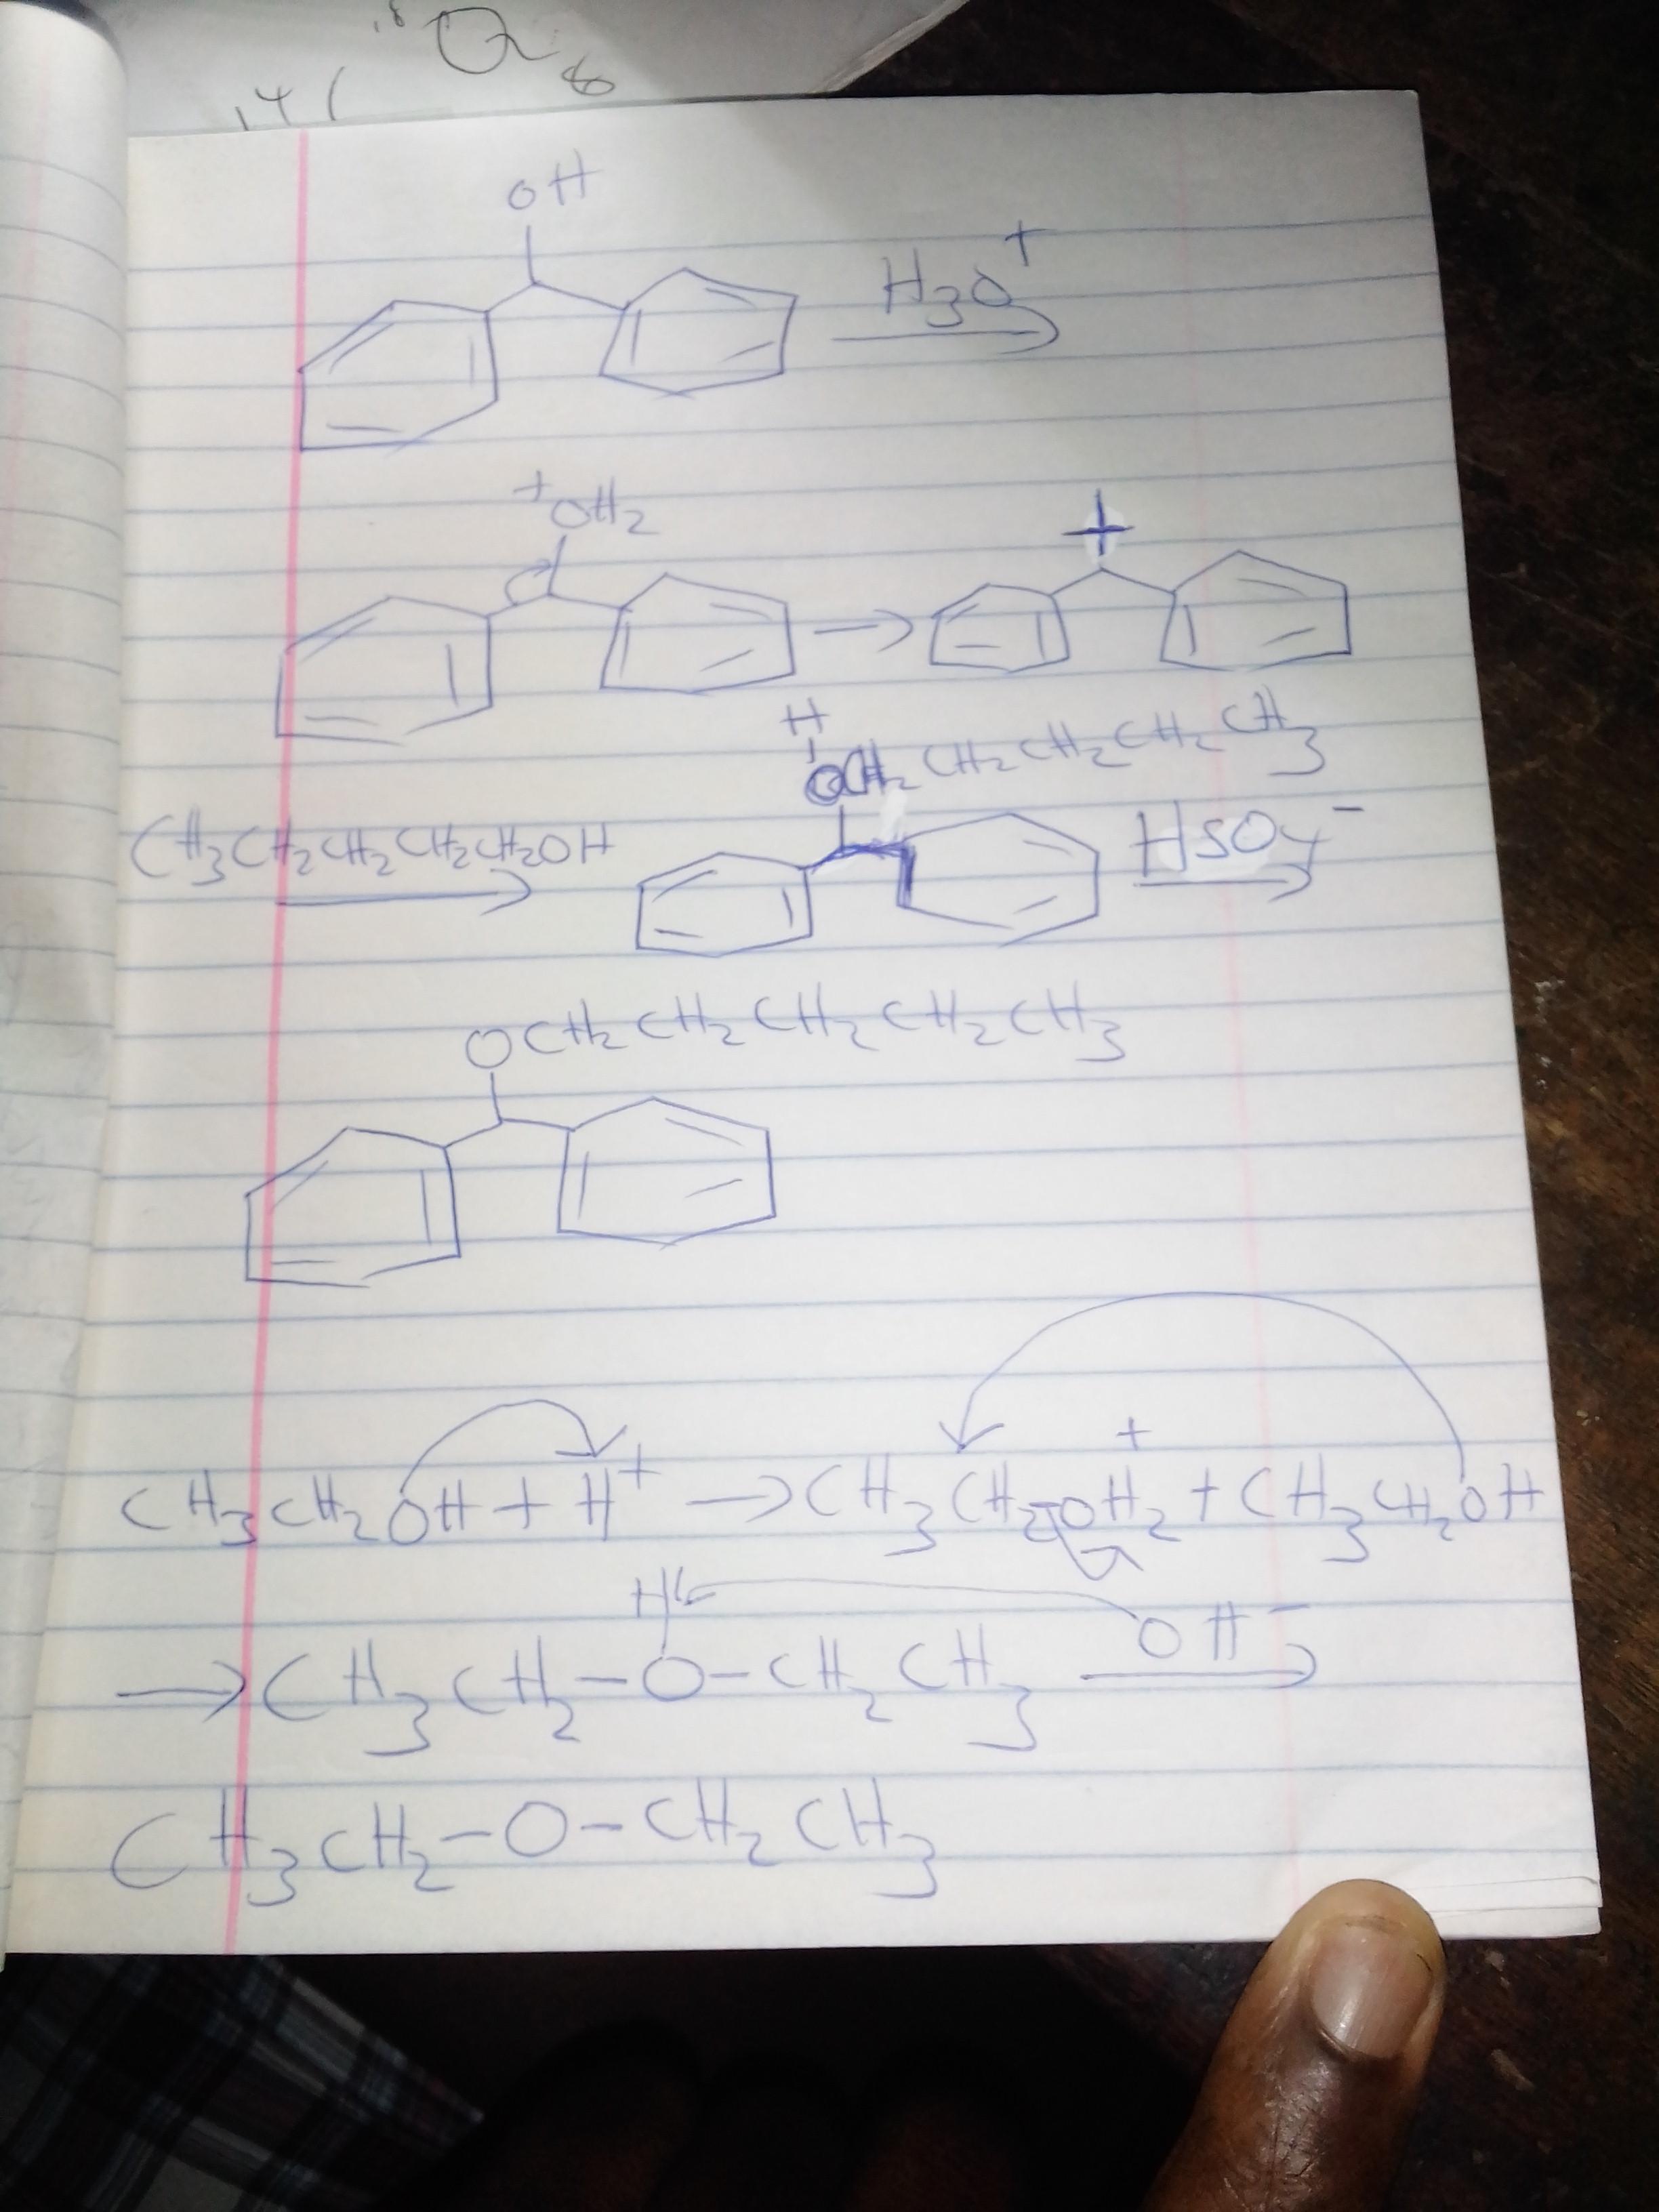 OH
H3O+
+OH2
+
H
OCH2CH2CH2CH2CH3
CH3CH2CH2CH2CH2OH
HSO4-
OCH2CH2CH2CH2CH3
CH3CH2OH + H+ → CH3CH2-OH2+ + CH3CH2OH
H
OH-
→ CH3CH2-O-CH2CH3
CH3CH2-O-CH2CH3